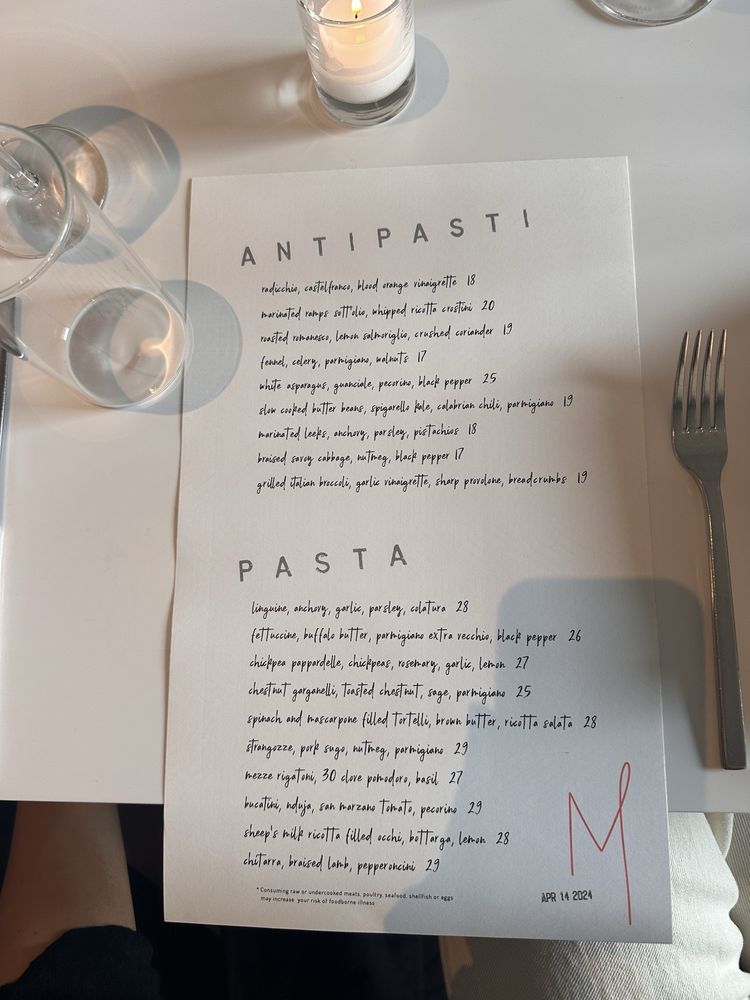 ANTIPASTI
radicchio, castelfranco, blood orange vinaigrette 18
marinated ramps sott'olio, whipped ricotta crostini 20
roasted romanesco, lemon salmoriglio, crushed coriander 19
fennel, celery, parmigiano, walnuts 17
white asparagus, guanciale, pecorino, black pepper 25
slow cooked butter beans, spigarello kale, calabrian chili, parmigiano 19
marinated leeks, anchovy, parsley, pistachios 18
braised savoy cabbage, nutmeg, black pepper 17
grilled italian broccoli, garlic vinaigrette, sharp provolone, breadcrumbs 19
PASTA
linguine, anchovy, garlic, parsley, colatura 28
fettuccine, buffalo butter, parmigiano extra vecchio, black pepper 26
chickpea pappardelle, chickpeas, rosemary, garlic, lemon 27
chestnut garganelli, toasted chestnut, sage, parmigiano 25
spinach and mascarpone filled tortelli, brown butter, ricotta salata 28
strangozze, pork sugo, nutmeg, parmigiano 29
mezze rigatoni, 30 clove pomodoro, basil 27
bucatini, nduja, san marzano tomato, pecorino 29
sheep's milk ricotta filled occhi, bottarga, lemon 28
chitarra, braised lamb, pepperoncini 29
* Consuming raw or undercooked meats, poultry, seafood, shellfish or eggs
may increase your risk of foodborne illness
M
APR 14 2024